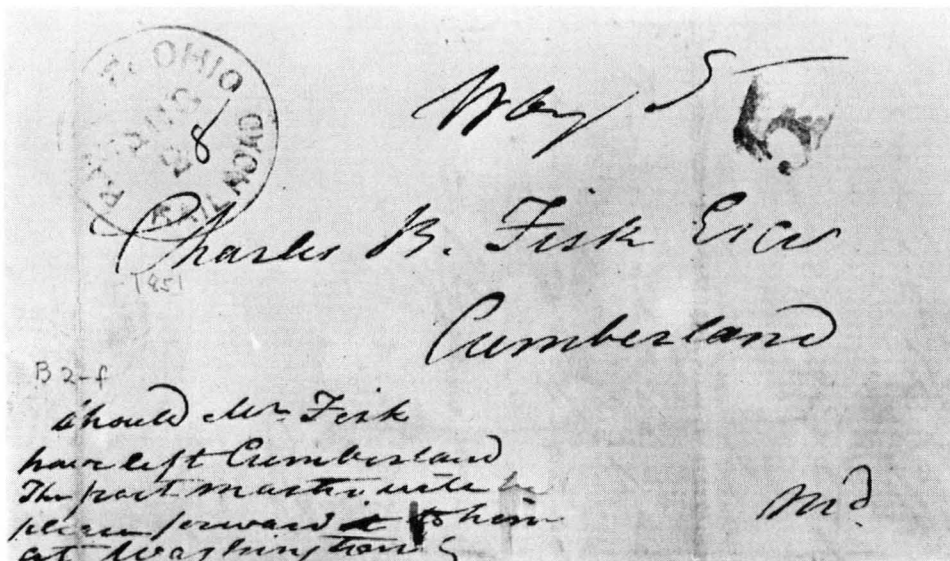 & OHIO RAIL ROAD
8
Way 5
5
Charles B. Fisk Esqr
1851
Cumberland
B 2-f
should Mr Fisk
have left Cumberland
The post master will be
please forward it to him
at Washington
Md